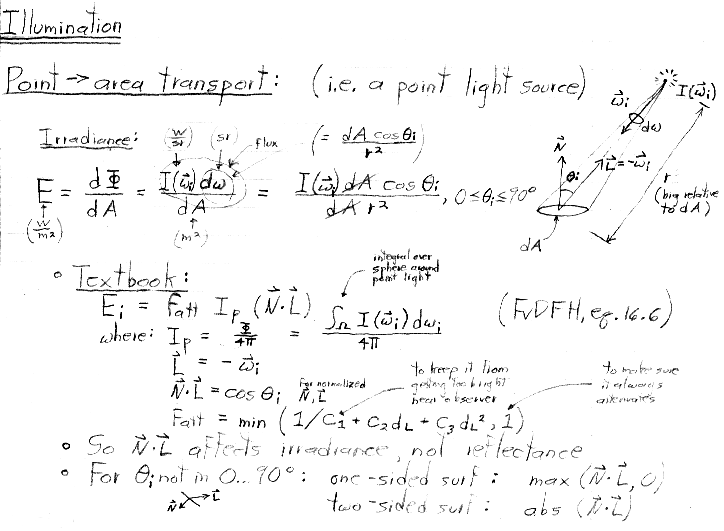 Illumination
Point → area transport: (i.e. a point light source)
Irradiance: (W/sr) (sr) flux (= dA cosθi / r²)
E = dΦ/dA = I(ω⃗i) dω / dA = I(ω⃗i) dA cosθi / dA r², 0≤θi≤90°
(W/m²) (m²)
I(ω⃗i)
ω⃗i
dω
N⃗
L⃗=-ω⃗i
θi
r
(big relative
to dA)
dA
integral over
sphere around
point light
• Textbook:
Ei = Fatt Ip (N⃗·L⃗) (FvDFH, eq. 16.6)
where: Ip = Φ/4π = ∫Ω I(ω⃗i) dωi / 4π
L⃗ = -ω⃗i
N⃗·L⃗ = cos θi for normalized N⃗, L⃗
to keep it from
getting too bright
near observer
to make sure
it always
attenuates
Fatt = min (1/C1 + C2dL + C3dL², 1)
• So N⃗·L⃗ affects irradiance, not reflectance
• For θi not in 0...90°: one-sided surf: max (N⃗·L⃗, 0)
N⃗ L⃗ two-sided surf: abs (N⃗·L⃗)